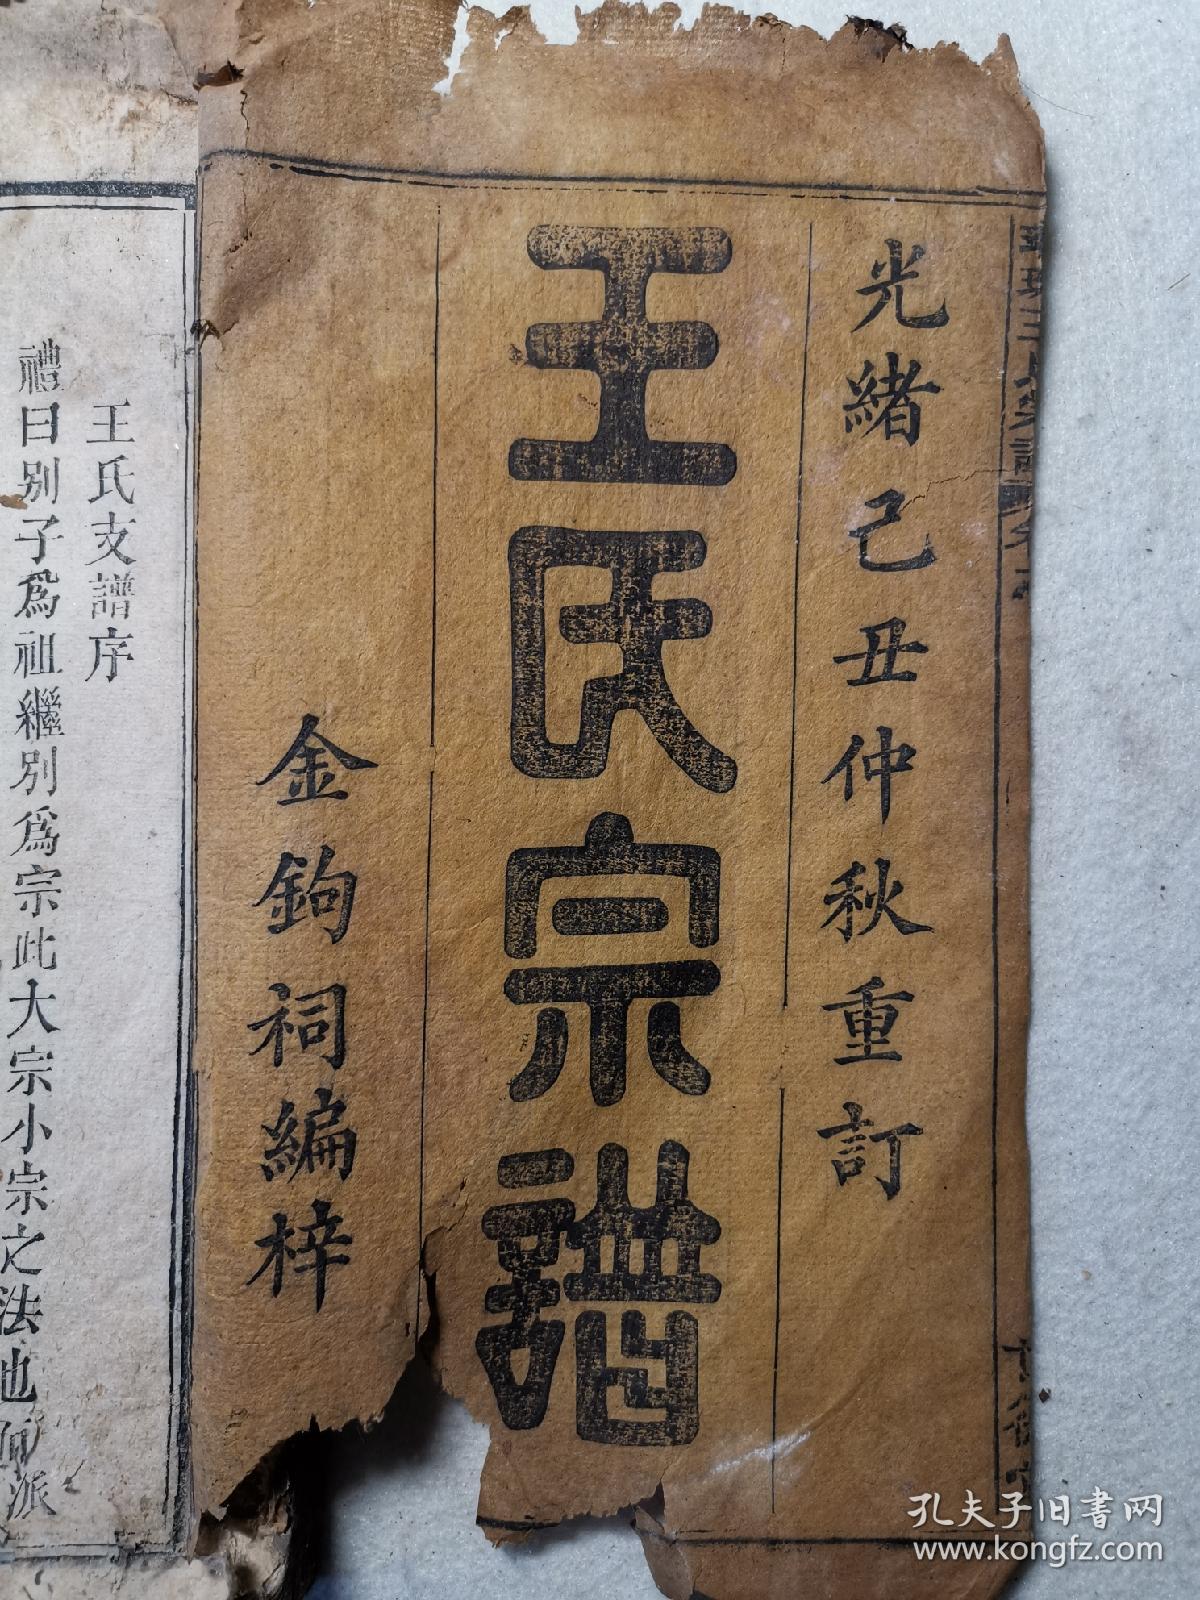 光緒己丑仲秋重訂
王氏宗譜
金鉤祠編梓
王氏支譜序
禮曰別子爲祖繼別爲宗此大宗小宗之法也
派
孔夫子旧书网
www.kongfz.com